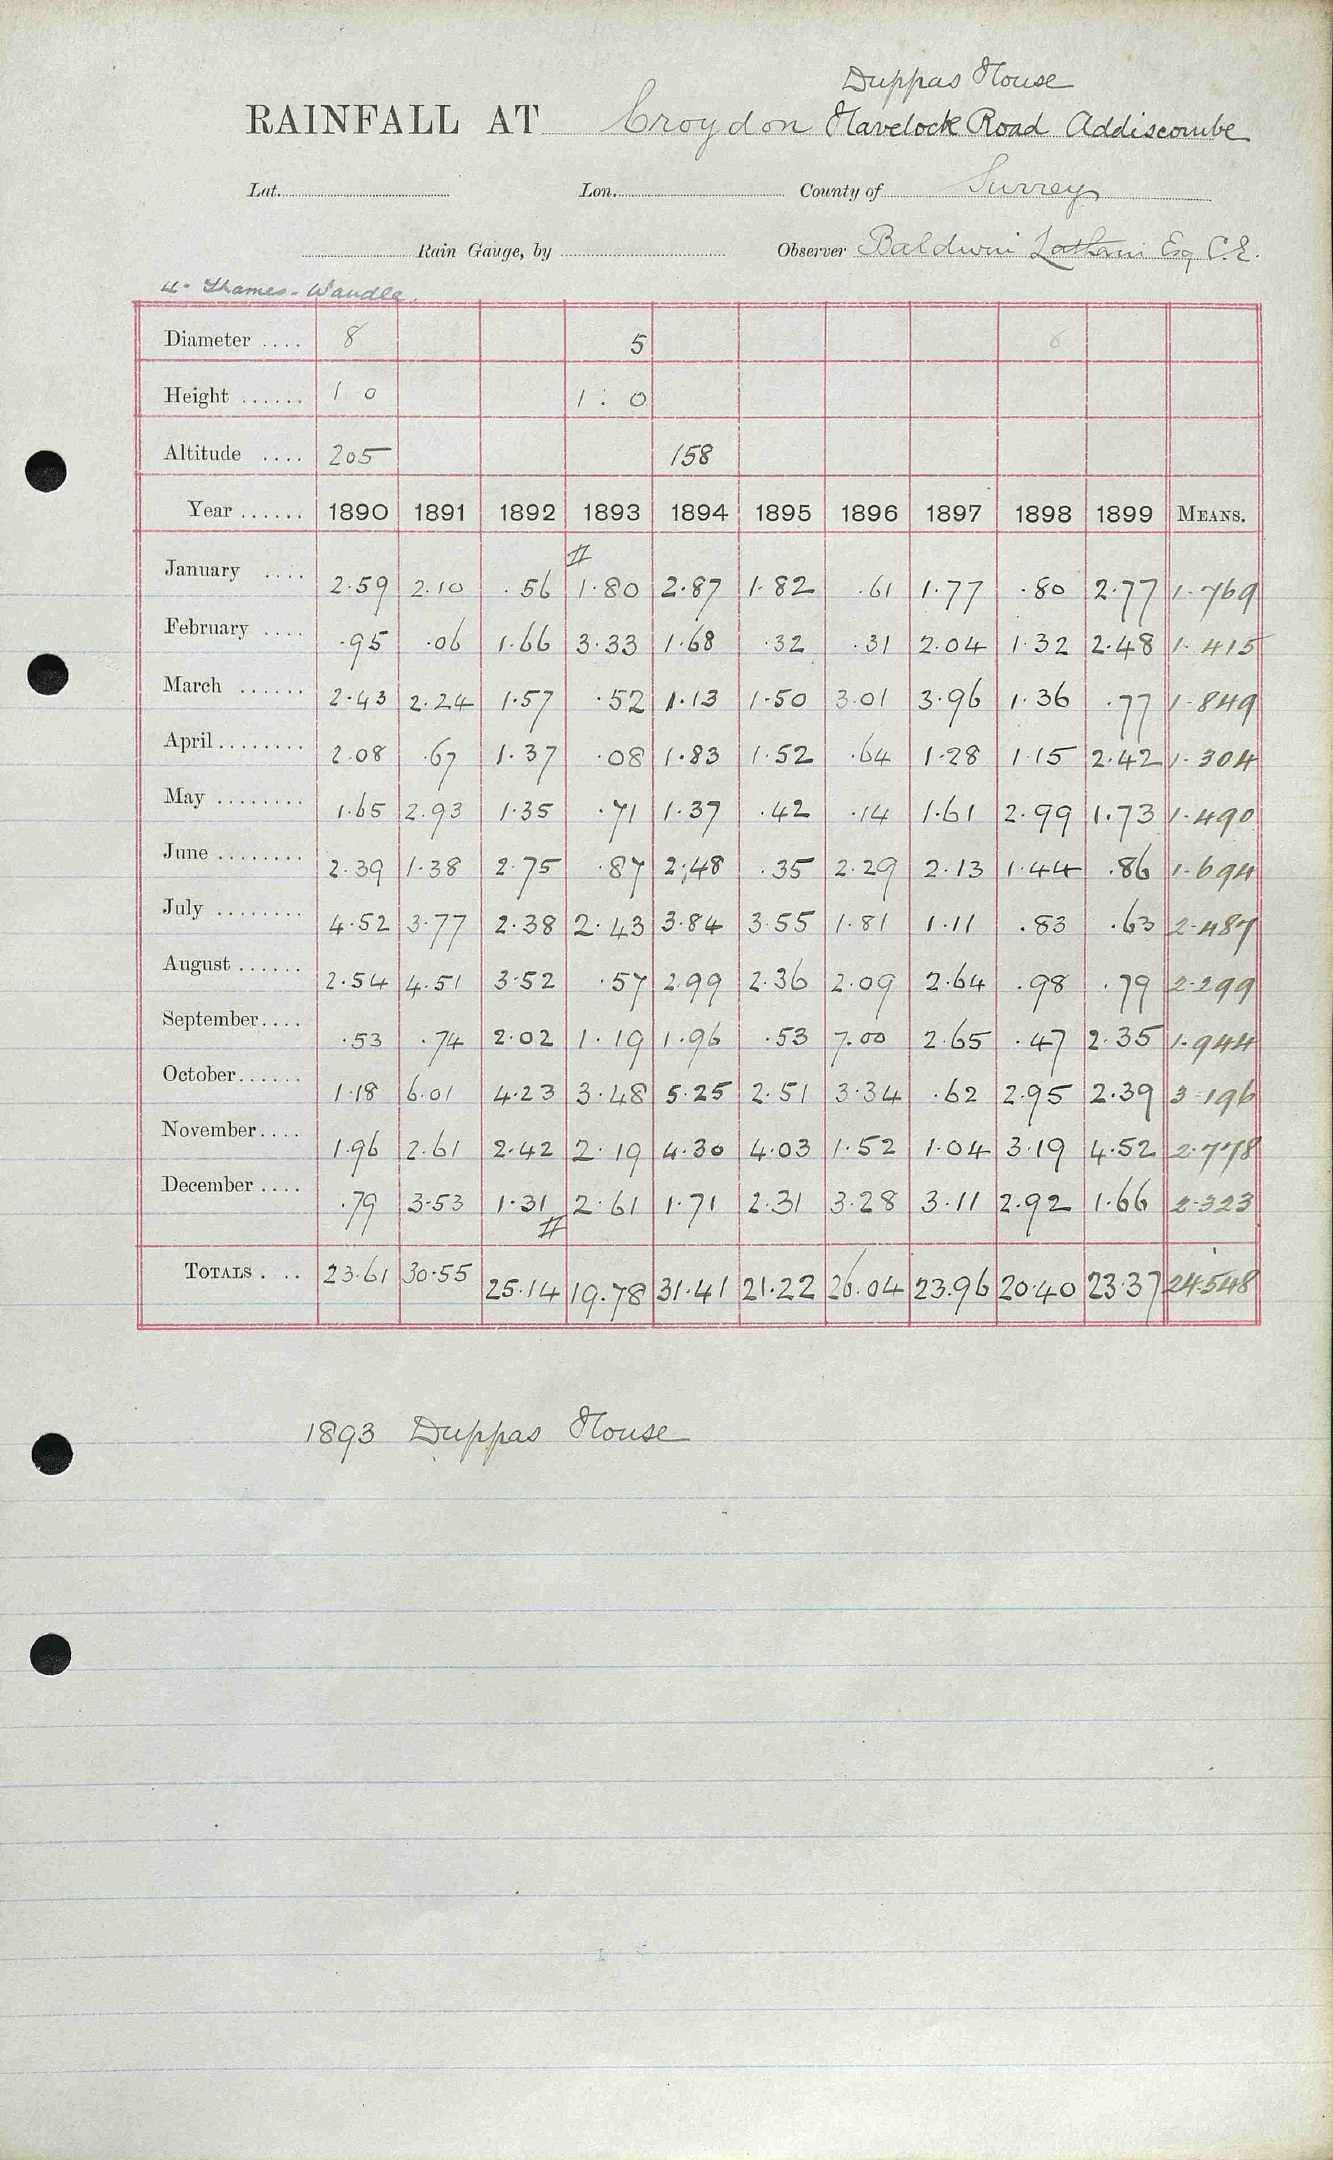 Duppas House
RAINFALL AT Croydon Havelock Road Addiscombe
Lat. Lon. County of Surrey
Rain Gauge, by Observer Baldwin Latham Esq C.E.
4 - Thames - Wandle.
Diameter .... 8 5 8
Height ...... 1 0 1 : 0
Altitude .... 205 158
Year ...... 1890 1891 1892 1893 1894 1895 1896 1897 1898 1899 MEANS.
#
January .... 2.59 2.10 .56 1.80 2.87 1.82 .61 1.77 .80 2.77 1.769
February .... .95 .06 1.66 3.33 1.68 .32 .31 2.04 1.32 2.48 1.415
March ...... 2.43 2.24 1.57 .52 1.13 1.50 3.01 3.96 1.36 .77 1.849
April ........ 2.08 .67 1.37 .08 1.83 1.52 .64 1.28 1.15 2.42 1.304
May ........ 1.65 2.93 1.35 .71 1.37 .42 .14 1.61 2.99 1.73 1.490
June ........ 2.39 1.38 2.75 .87 2.48 .35 2.29 2.13 1.44 .86 1.694
July ........ 4.52 3.77 2.38 2.43 3.84 3.55 1.81 1.11 .83 .63 2.487
August ...... 2.54 4.51 3.52 .57 2.99 2.36 2.09 2.64 .98 .79 2.299
September .... .53 .74 2.02 1.19 1.96 .53 7.00 2.65 .47 2.35 1.944
October ...... 1.18 6.01 4.23 3.48 5.25 2.51 3.34 .62 2.95 2.39 3.196
November .... 1.96 2.61 2.42 2.19 4.30 4.03 1.52 1.04 3.19 4.52 2.778
December .... .79 3.53 1.31 2.61 1.71 2.31 3.28 3.11 2.92 1.66 2.323
#
TOTALS .... 23.61 30.55 25.14 19.78 31.41 21.22 26.04 23.96 20.40 23.37 24.548
1893 Duppas House